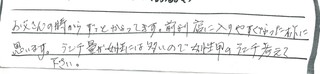 お父さんの時からずっとかよってます。前より店に入りやすくなった様に
思います。ランチ量が女性には多いので女性用のランチ考えて
下さい。